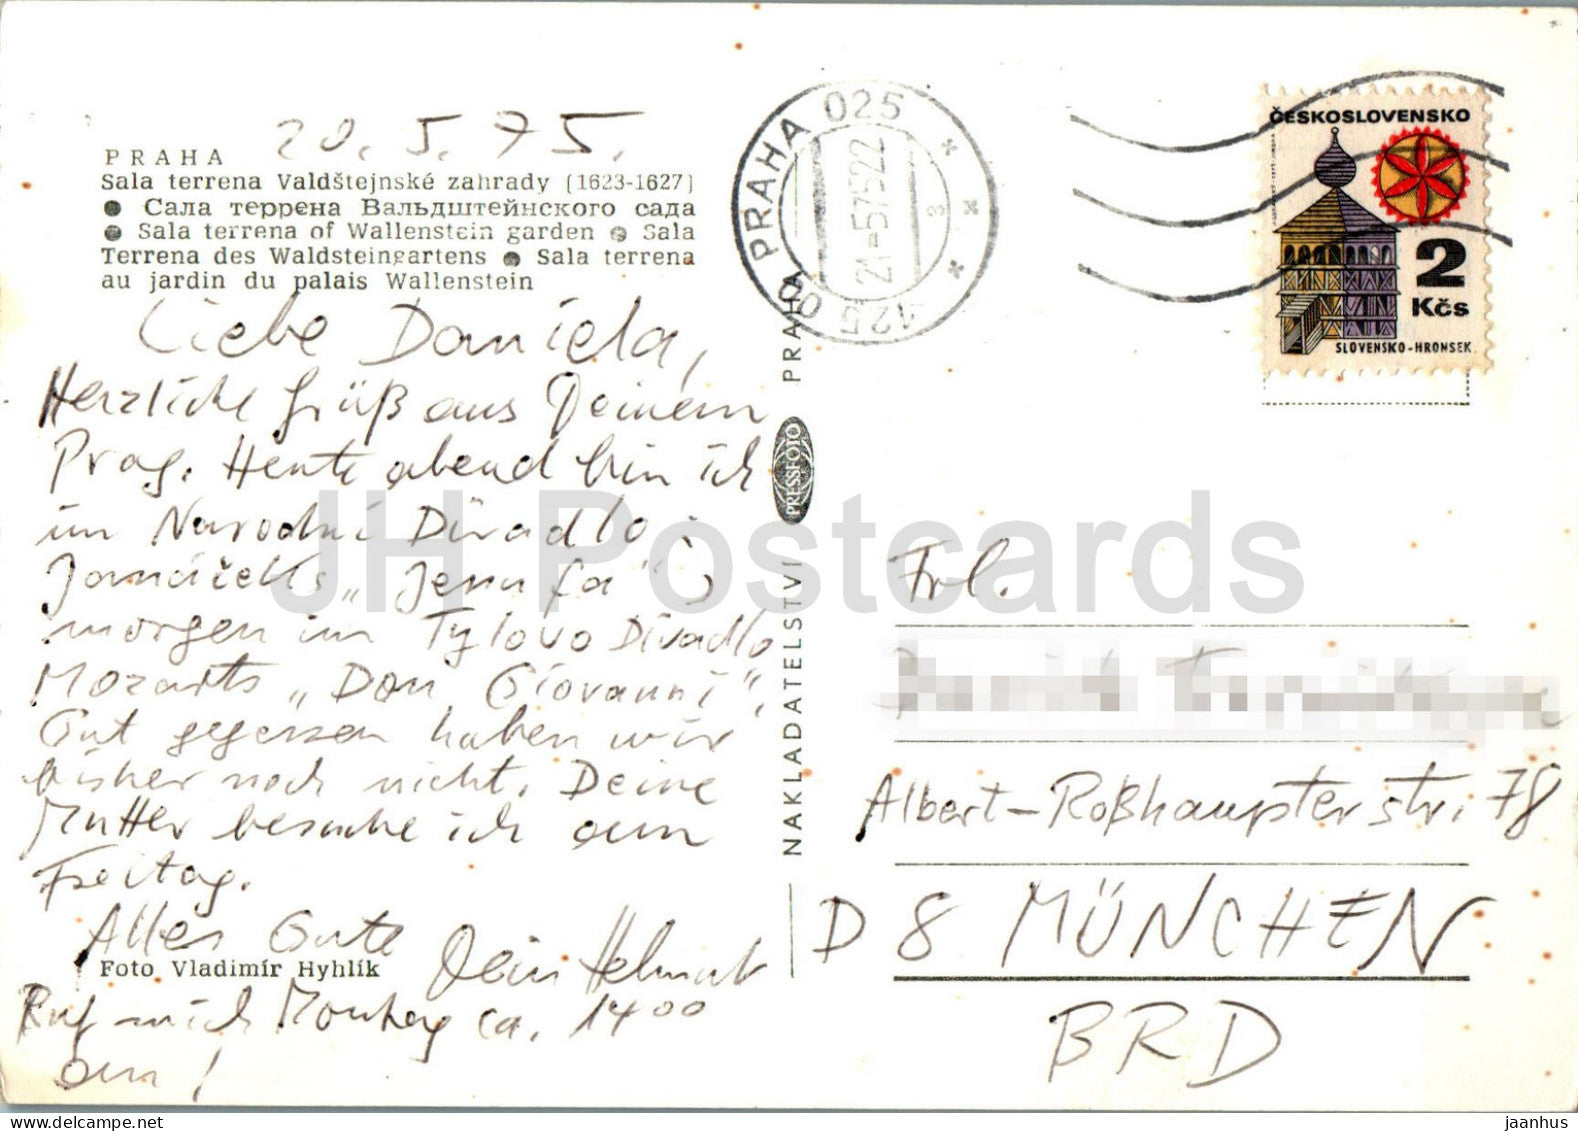 20.5.75.
PRAHA
Sala terrena Valdštejnské zahrady (1623-1627)
● Сала террена Вальдштейнского сада
● Sala terrena of Wallenstein garden ● Sala
Terrena des Waldsteingartens ● Sala terrena
au jardin du palais Wallenstein
Liebe Daniela,
Herzliche Grüß aus Deinem
Prag. Heute abend bin ich
im Narodni Divadlo:
Janáčeks „Jenufa",
morgen im Tylovo Divadlo
Mozarts „Don Giovanni",
Gut gegessen haben wir
bisher noch nicht. Deine
Mutter besuche ich am
Freitag.
Alles Gute
Dein Helmut
Foto Vladimír Hyhlík
Ruf mich Montag ca. 14 00
an!
NAKLADATELSTVÍ PRESSFOTO PRAHA
PRAHA 025
125 00
21-57522
ČESKOSLOVENSKO
2
Kčs
SLOVENSKO-HRONSEK
Frl.
Albert-Roßhaupterstr. 78
D 8 MÜNCHEN
BRD
JH Postcards
jaanhus